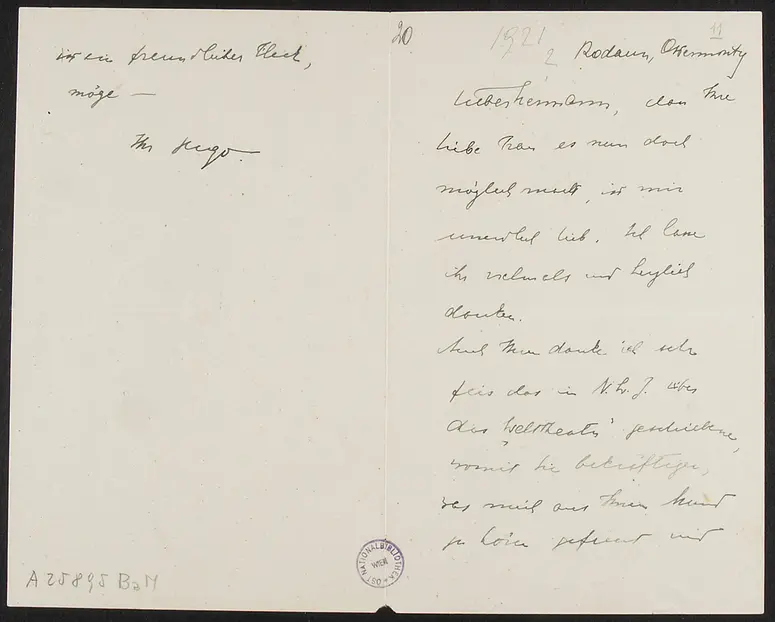 20
1921
2
11
Rodaun, Ostermontg
lieber Hermann, dass Ihre
liebe Frau es nun doch
möglich macht, ist mir
unendlich lieb. Ich lasse
ihr vielmals und herzlich
danken.
Auch Ihnen danke ich sehr
für das im N. W. J. über
das „Welttheater“ geschriebene,
womit Sie bekräftigen,
was mich aus Ihrem Mund
zu hören gefreut und
ist ein freundlicher
möge —
Ihr Hugo.
A 25895 BaM
NATIONALBIBLIOTHEK
WIEN